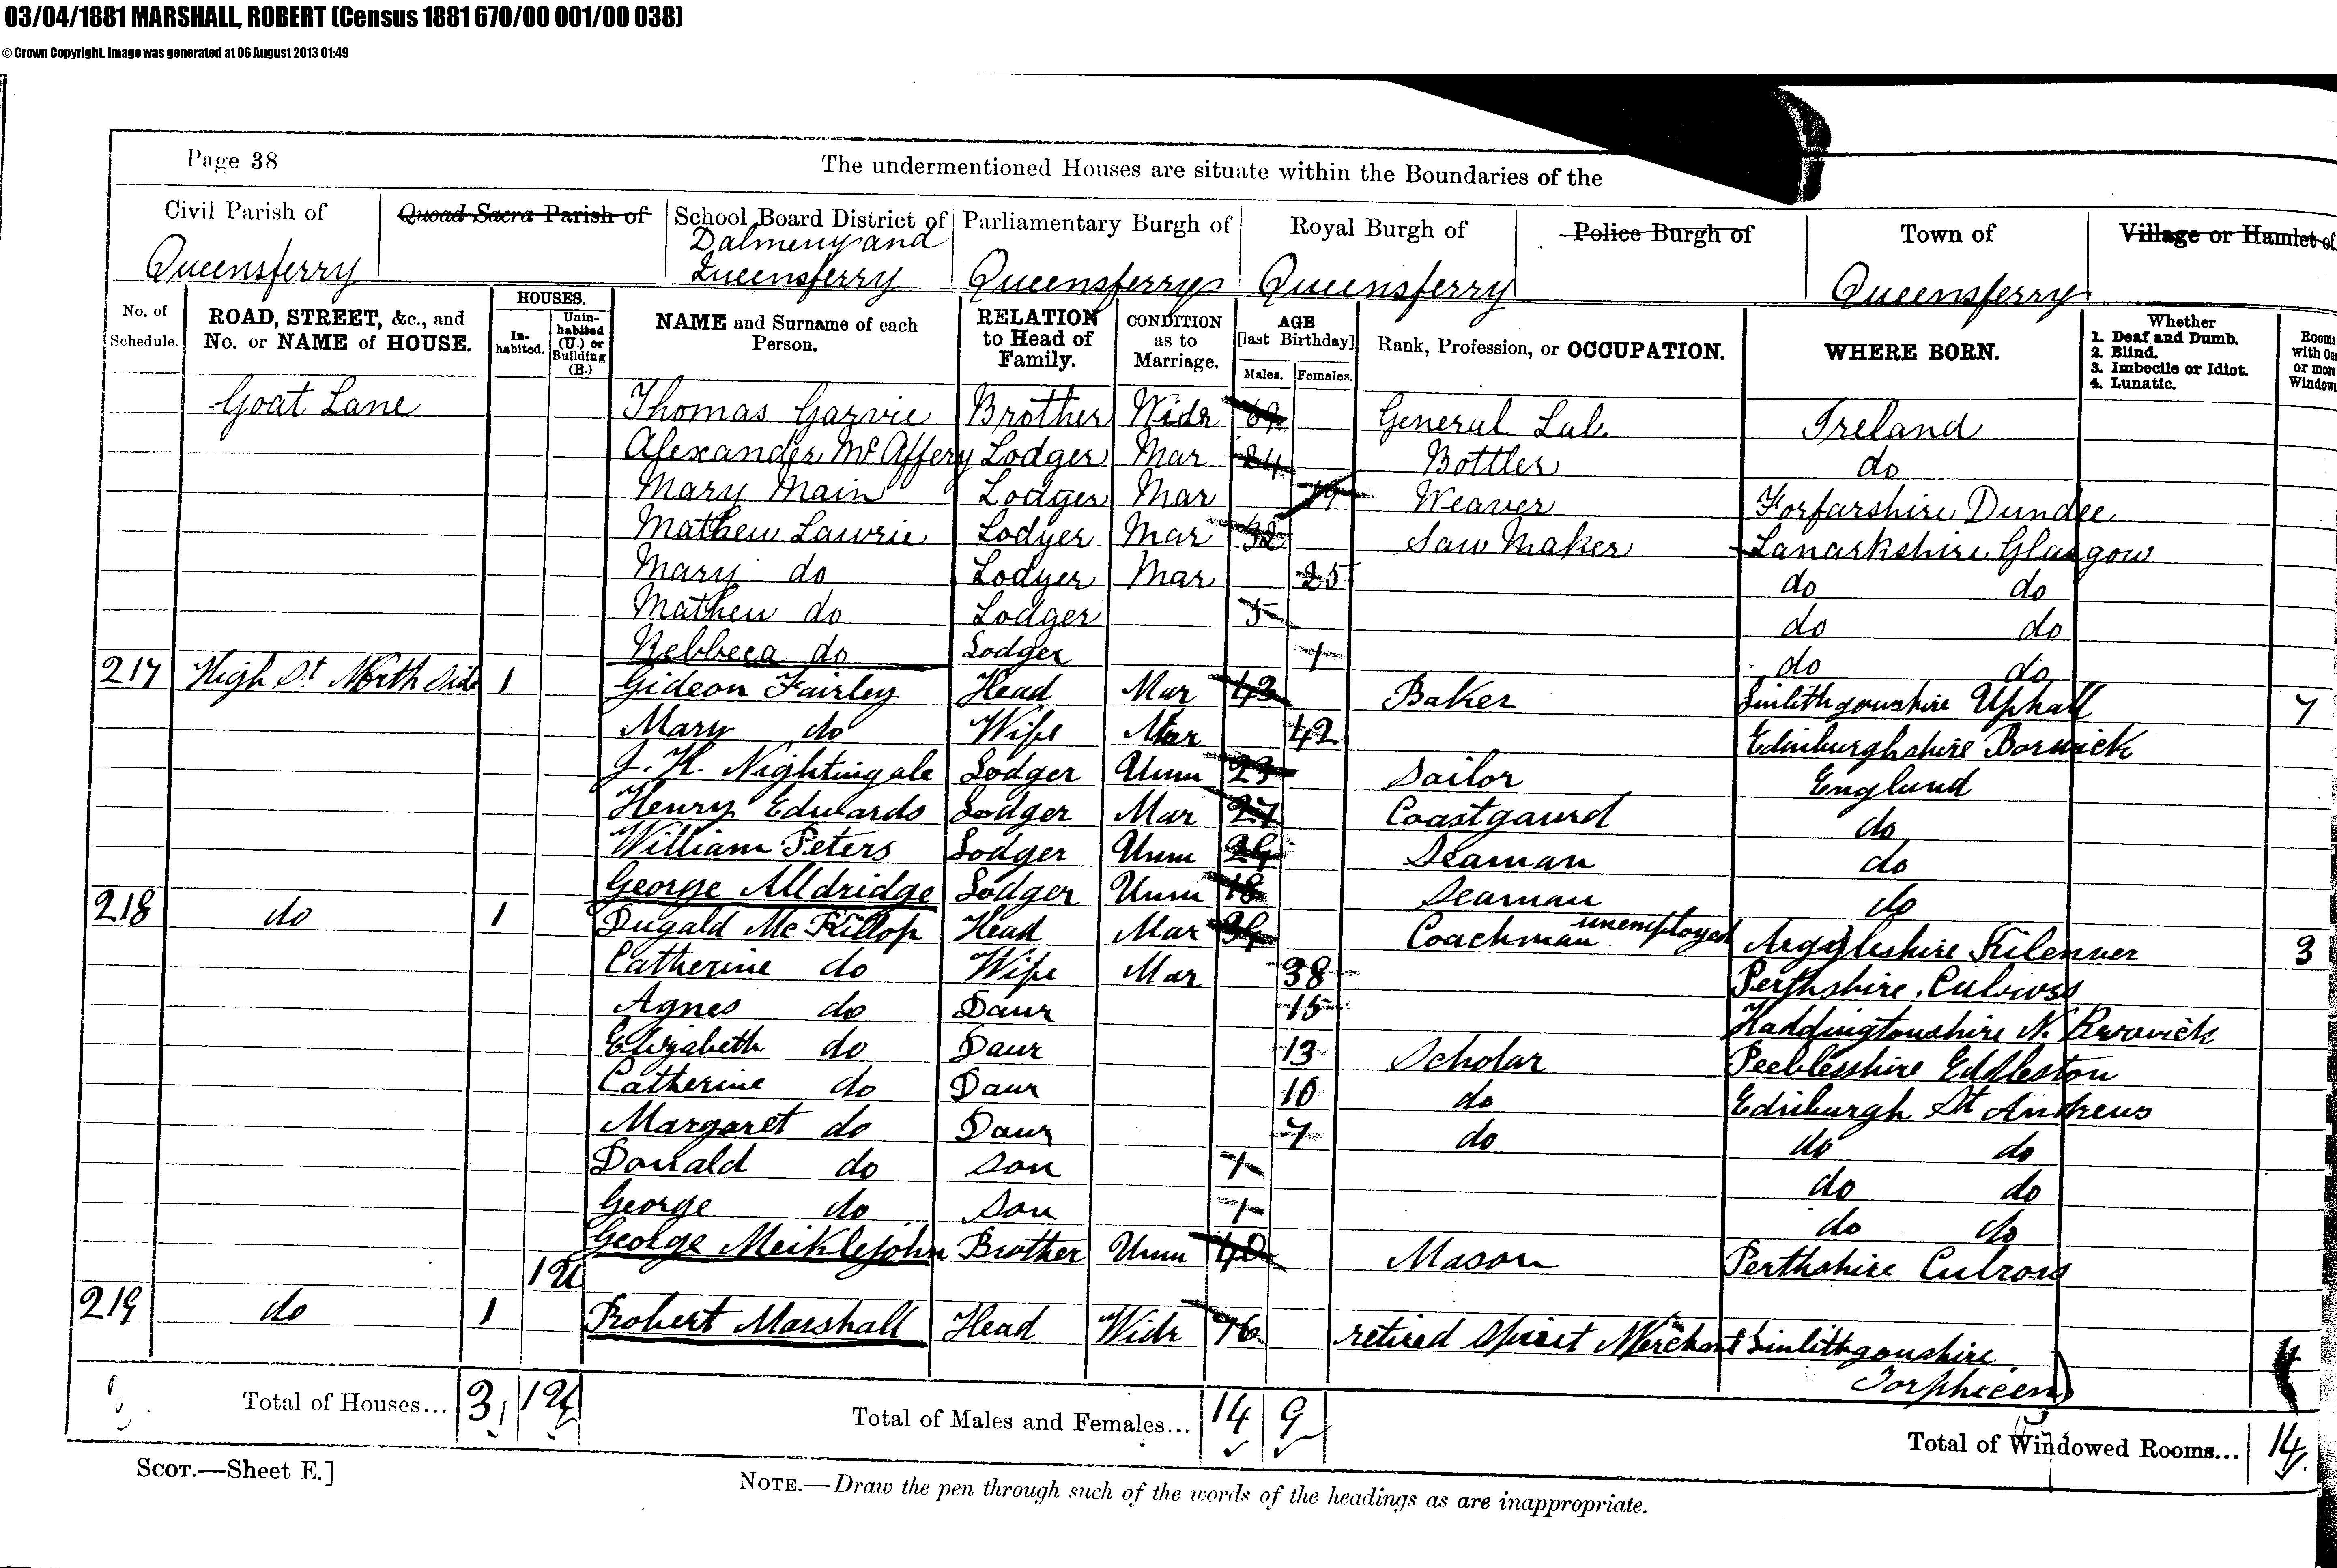 03/04/1881 MARSHALL, ROBERT (Census 1881 670/00 001/00 038)
© Crown Copyright. Image was generated at 06 August 2013 01:49
Page 38
The undermentioned Houses are situate within the Boundaries of the
Civil Parish of Quoad Sacra Parish of School Board District of Parliamentary Burgh of Royal Burgh of Police Burgh of Town of Village or Hamlet of
Queensferry Dalmeny and Queensferry Queensferry Queensferry Queensferry
No. of Schedule. ROAD, STREET, &c., and No. or NAME of HOUSE. HOUSES. In-habited. Unin-habited (U.) or Building (B.) NAME and Surname of each Person. RELATION to Head of Family. CONDITION as to Marriage. AGE [last Birthday] Males. Females. Rank, Profession, or OCCUPATION. WHERE BORN. Whether 1. Deaf and Dumb. 2. Blind. 3. Imbecile or Idiot. 4. Lunatic. Rooms with One or more Window
Goat Lane Thomas Garvie Brother Widr General Lab. Ireland
Alexander McAffery Lodger Mar 24 Bottler do
Mary Main Lodger Mar 19 Weaver Forfarshire Dundee
Mathew Lawrie Lodger Mar 32 Saw Maker Lanarkshire Glasgow
Mary do Lodger Mar 25 do do
Mathew do Lodger 5 do do
Rebbeca do Lodger 1 do do
217 High St North Side 1 Gideon Fairley Head Mar 43 Baker Linlithgowshire Uphall 7
Mary do Wife Mar 42 Edinburghshire Borwick
J. H. Nightingale Lodger Unm 23 Sailor England
Henry Edwards Lodger Mar 27 Coastgaurd do
William Peters Lodger Unm Seaman do
George Alldridge Lodger Unm 18 Seaman do
218 do 1 Dugald McKillop Head Mar Coachman unemployed Argyleshire 3
Catherine do Wife Mar 38 Perthshire Culross
Agnes do Daur 15 Haddingtonshire N. Berwick
Elizabeth do Daur 13 Scholar Peeblesshire Eddleston
Catherine do Daur 10 do Edinburgh St Andrews
Margaret do Daur 7 do do do
Donald do Son 1 do do
George do Son 1 do do
George Meiklejohn Brother Unm 40 Mason Perthshire Culross
1U
219 do 1 Robert Marshall Head Widr 76 retired Spirit Merchant Linlithgowshire Torphicen 4
Total of Houses... 3 1U Total of Males and Females... 14 9 Total of Windowed Rooms... 14
SCOT.—Sheet E.]
NOTE.—Draw the pen through such of the words of the headings as are inappropriate.